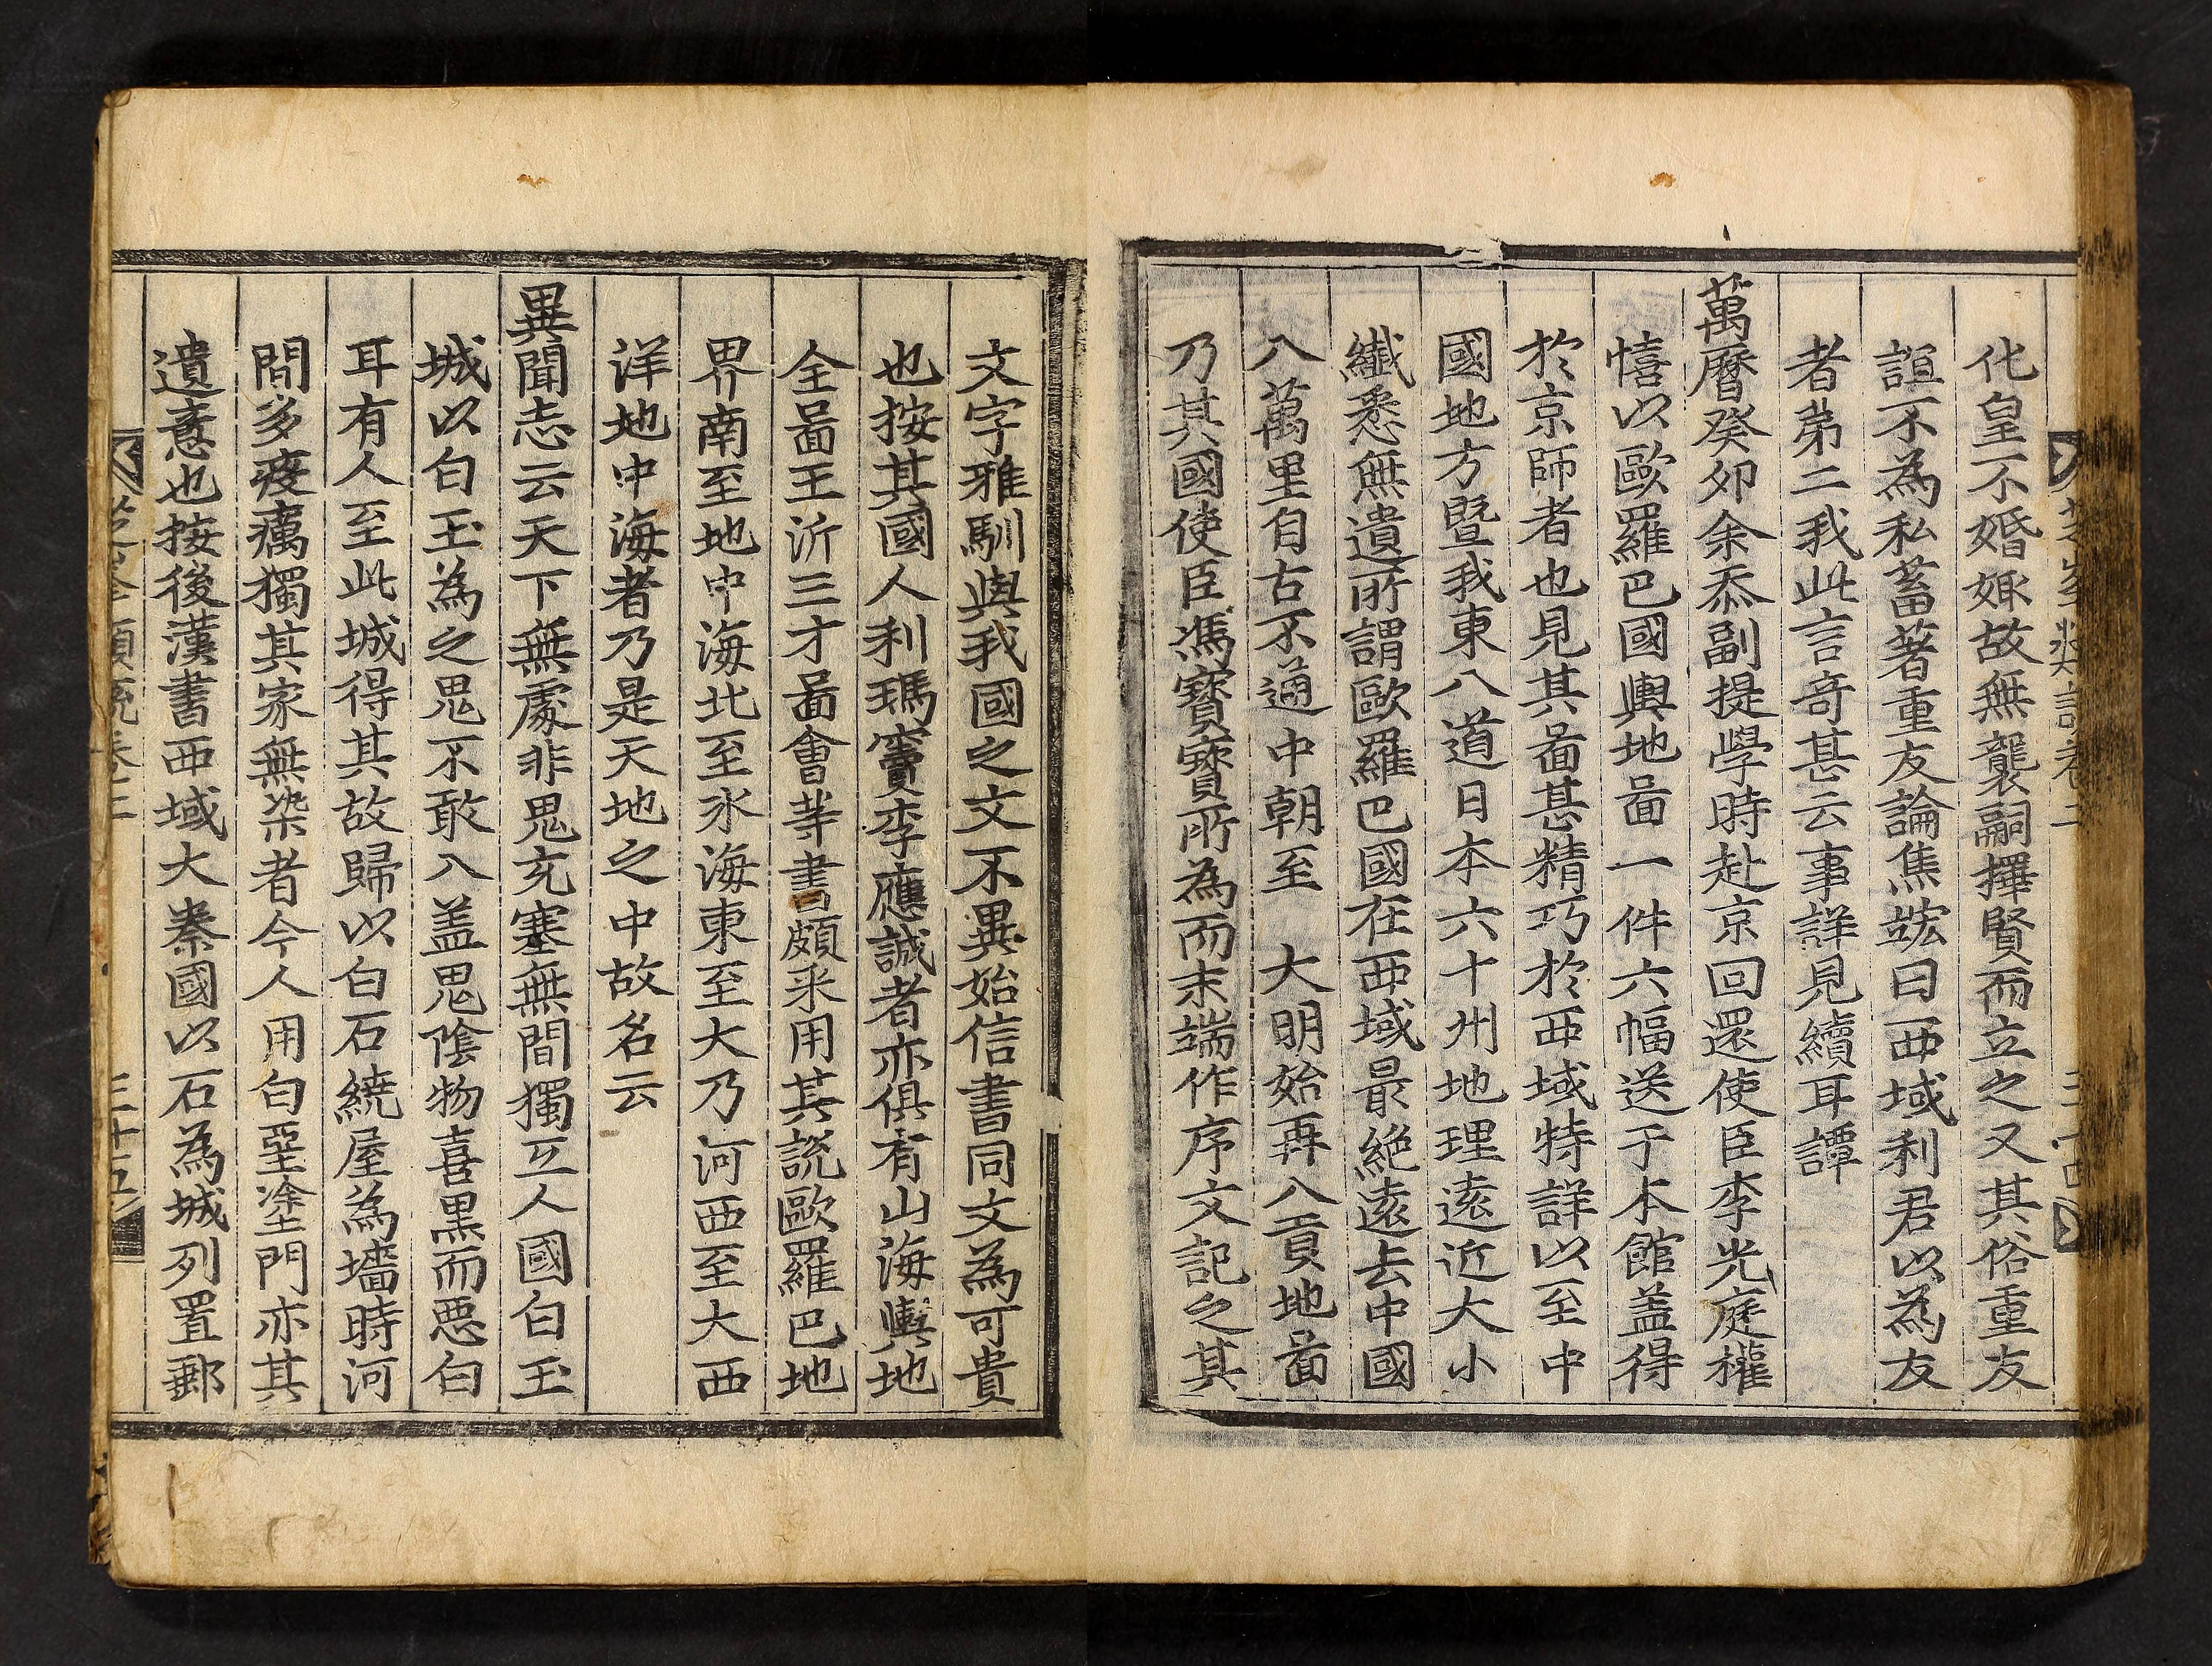 化皇不婚娵故無襲嗣擇賢而立之又其俗重友
誼不為私蓄著重友論焦竑曰西域利君以為友
者弟二我此言奇甚云事詳見續耳譚
萬曆癸卯余忝副提學時赴京回還使臣李光庭權
憘以歐羅巴國輿地啚一件六幅送于本館盖得
於京師者也見其啚甚精巧於西域特詳以至中
國地方暨我東八道日本六十州地理遠近大小
纖悉無遺所謂歐羅巴國在西域最絶遠去中國
八萬里自古不通中朝至 大明始再入貢地啚
乃其國使臣馮寶寶所為而末端作序文記之其
文字雅馴與我國之文不異始信書同文為可貴
也按其國人利瑪竇李應誠者亦俱有山海輿地
全啚王沂三才啚會等書頗采用其説歐羅巴地
界南至地中海北至氷海東至大乃河西至大西
洋地中海者乃是天地之中故名云
異聞志云天下無處非鬼充塞無間獨互人國白玉
城以白玉為之鬼不敢入盖鬼陰物喜黒而惡白
耳有人至此城得其故歸以白石繞屋為墻時河
間多疫癘獨其家無染者今人用白堊塗門亦其
遺意也按後漢書西域大秦國以石為城列置郵
三十五